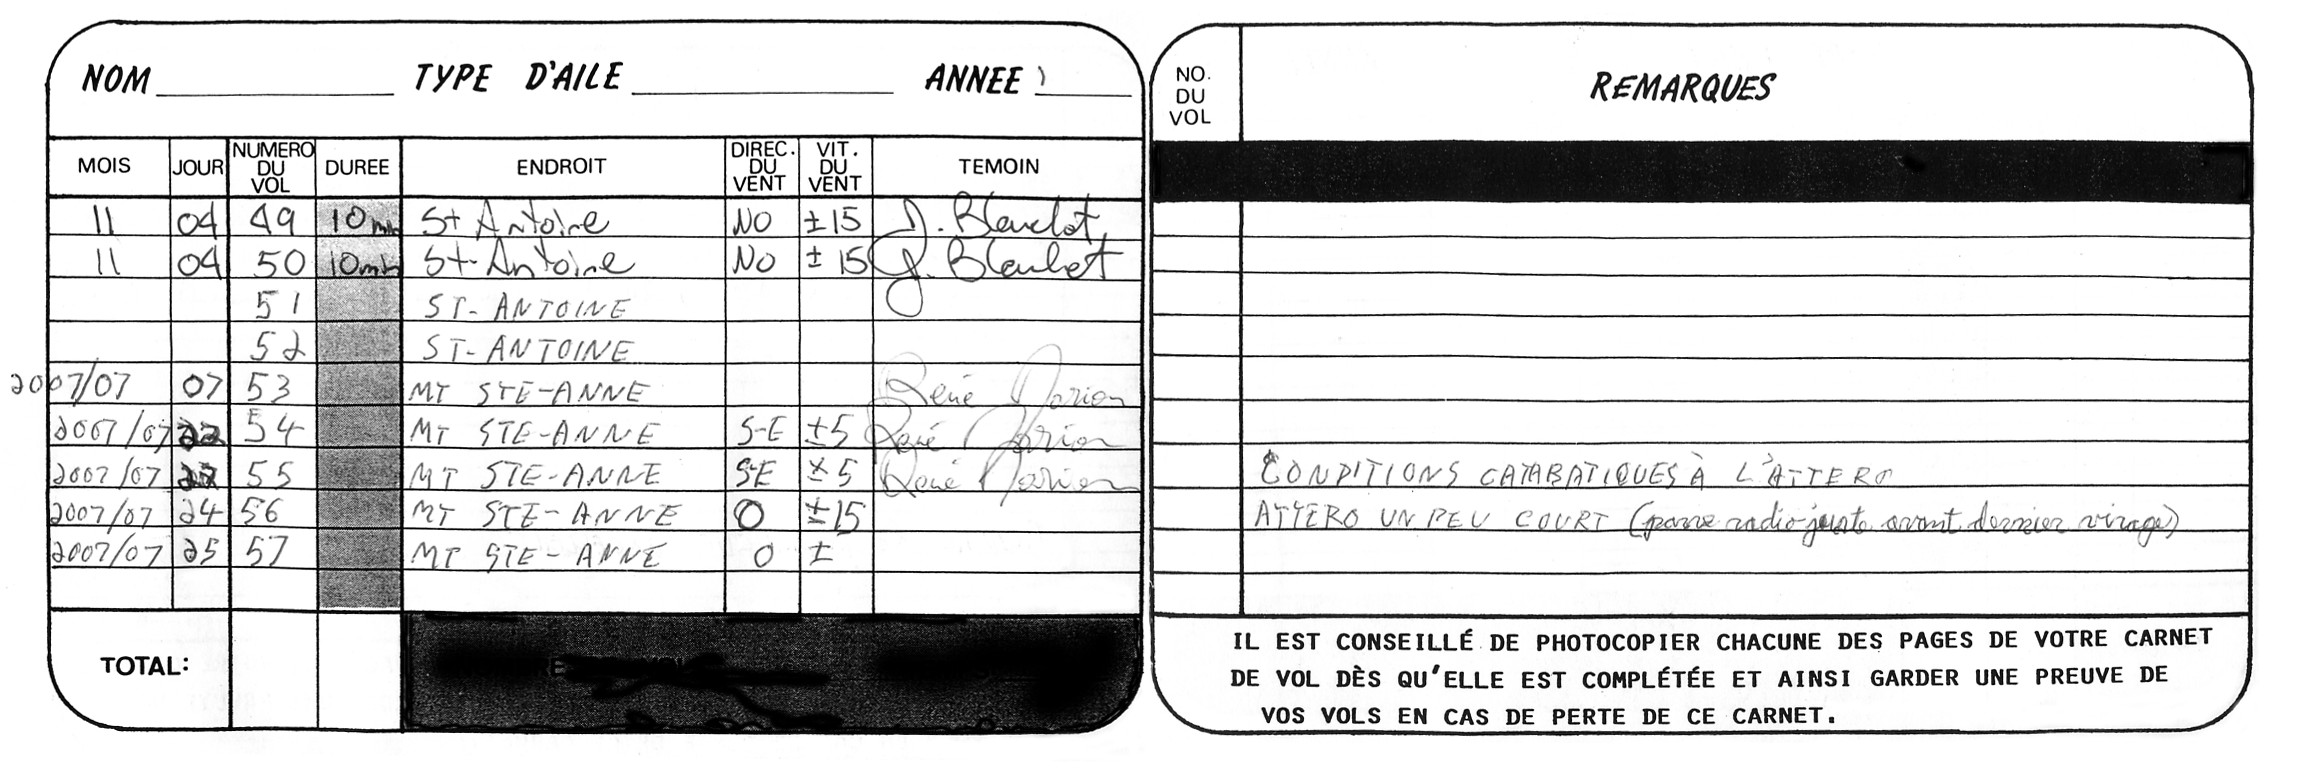 NOM TYPE D'AILE ANNEE
NO. DU VOL REMARQUES
MOIS JOUR NUMERO DU VOL DUREE ENDROIT DIREC. DU VENT VIT. DU VENT TEMOIN
11 04 49 10 min St Antoine NO ±15
11 04 50 10 min St-Antoine NO ±15
51 ST-ANTOINE
52 ST-ANTOINE
2007/07 07 53 MT STE-ANNE René
2007/07 22 54 MT STE-ANNE S-E ±5 René
2007/07 55 MT STE-ANNE SE ±5 René
CONDITIONS CATABATIQUES À L'ATTERO
2007/07 24 56 MT STE-ANNE O ±15
ATTERO UN PEU COURT (panne radio juste avant dernier virage)
2007/07 25 57 MT STE-ANNE O ±
TOTAL:
IL EST CONSEILLÉ DE PHOTOCOPIER CHACUNE DES PAGES DE VOTRE CARNET
DE VOL DÈS QU'ELLE EST COMPLÉTÉE ET AINSI GARDER UNE PREUVE DE
VOS VOLS EN CAS DE PERTE DE CE CARNET.